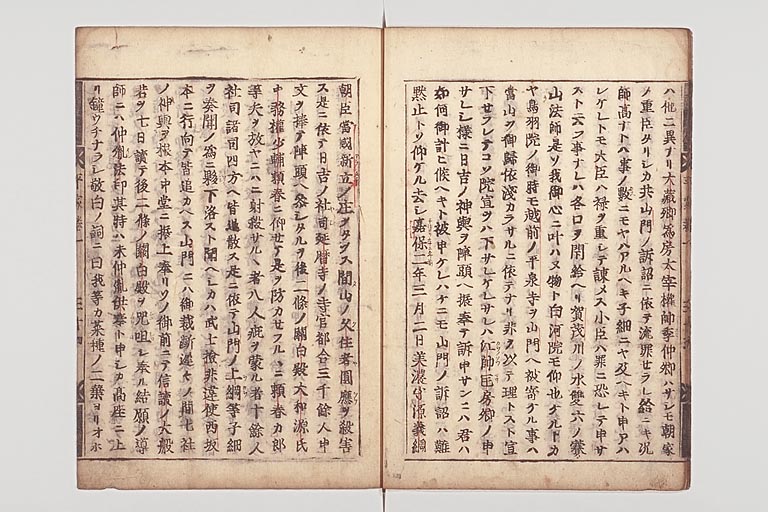 ハ他ニ異ナリ大藏卿為房太宰權帥季仲卿ハサシモ朝家
ノ重臣タリシカ共山門ノ訴訟ニ依テ流罪セラレ給ニキ况
師高ナトハ事ノ數ニモヤハアルヘキ子細ニヤ及ヘキト申アハ
レケレトモ大臣ハ祿ヲ重シテ諫メス小臣ハ罪ニ恐レテ申サ
スト云フ事ナレハ各口ヲ閉給ヘリ賀茂川ノ水雙六ノ賽
山法師是ソ我御心ニ叶ハヌ物ト白河院モ仰也ケルトカ
ヤ鳥羽院ノ御時モ越前ノ平泉寺ヲ山門ヘ被寄ケル事ハ
當山ヲ御歸依淺カラサルニ依テナリ非ヲ以テ理トスト宣
下セラレテコソ院宣ヲハ下サレケレサレハ江帥匡房卿ノ申
サレシ樣ニ日吉ノ神輿ヲ陣頭ヘ振奉テ訴申サンニハ君ハ
如何御計ヒ候ヘキト被申ケレハケニモ山門ノ訴訟ハ難
黙止トソ仰ケル去シ嘉保二年三月二日美濃守源義綱
朝臣當國新立ノ庄ヲタヲス間山ノ久住者圓應ヲ殺害
ス是ニ依テ日吉ノ社司延暦寺ノ寺官都合三十餘人申
文ヲ捧テ陣頭ヘ參シタルヲ後二條ノ關白殿大和源氏
中務權少輔頼春ニ仰セテ是ヲ防カセラルヽニ頼春カ郎
等矢ヲ放ヤニハニ射殺サルヽ者八人疵ヲ蒙ル者十餘人
社司諸司四方ヘ皆逃散ス是ニ依テ山門ノ上綱等子細
ヲ奏聞ノ為ニ夥下洛スト聞ヘシカハ武士撿非違使西坂
本ニ行向テ皆追カヘス山門ニハ御裁斷遲々ノ間七社
ノ神輿ヲ根本中堂ニ振上奉リソノ御前ニテ信讀ノ大般
若ヲ七日讀テ後二條ノ關白殿ヲ咒咀シ奉ル結願ノ導
師ニハ仲胤法印其時ハ未仲胤供奉ト申シカ高座ニ上
リ鐘ウチナラシ敬白ノ詞ニ曰我等カ菜種ノ二葉ヨリオホ
平家卷一